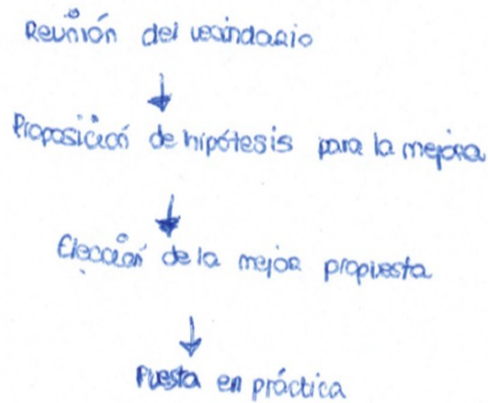 Reunión del vecindario
Proposición de hipótesis para la mejora
Elección de la mejor propuesta
Puesta en práctica